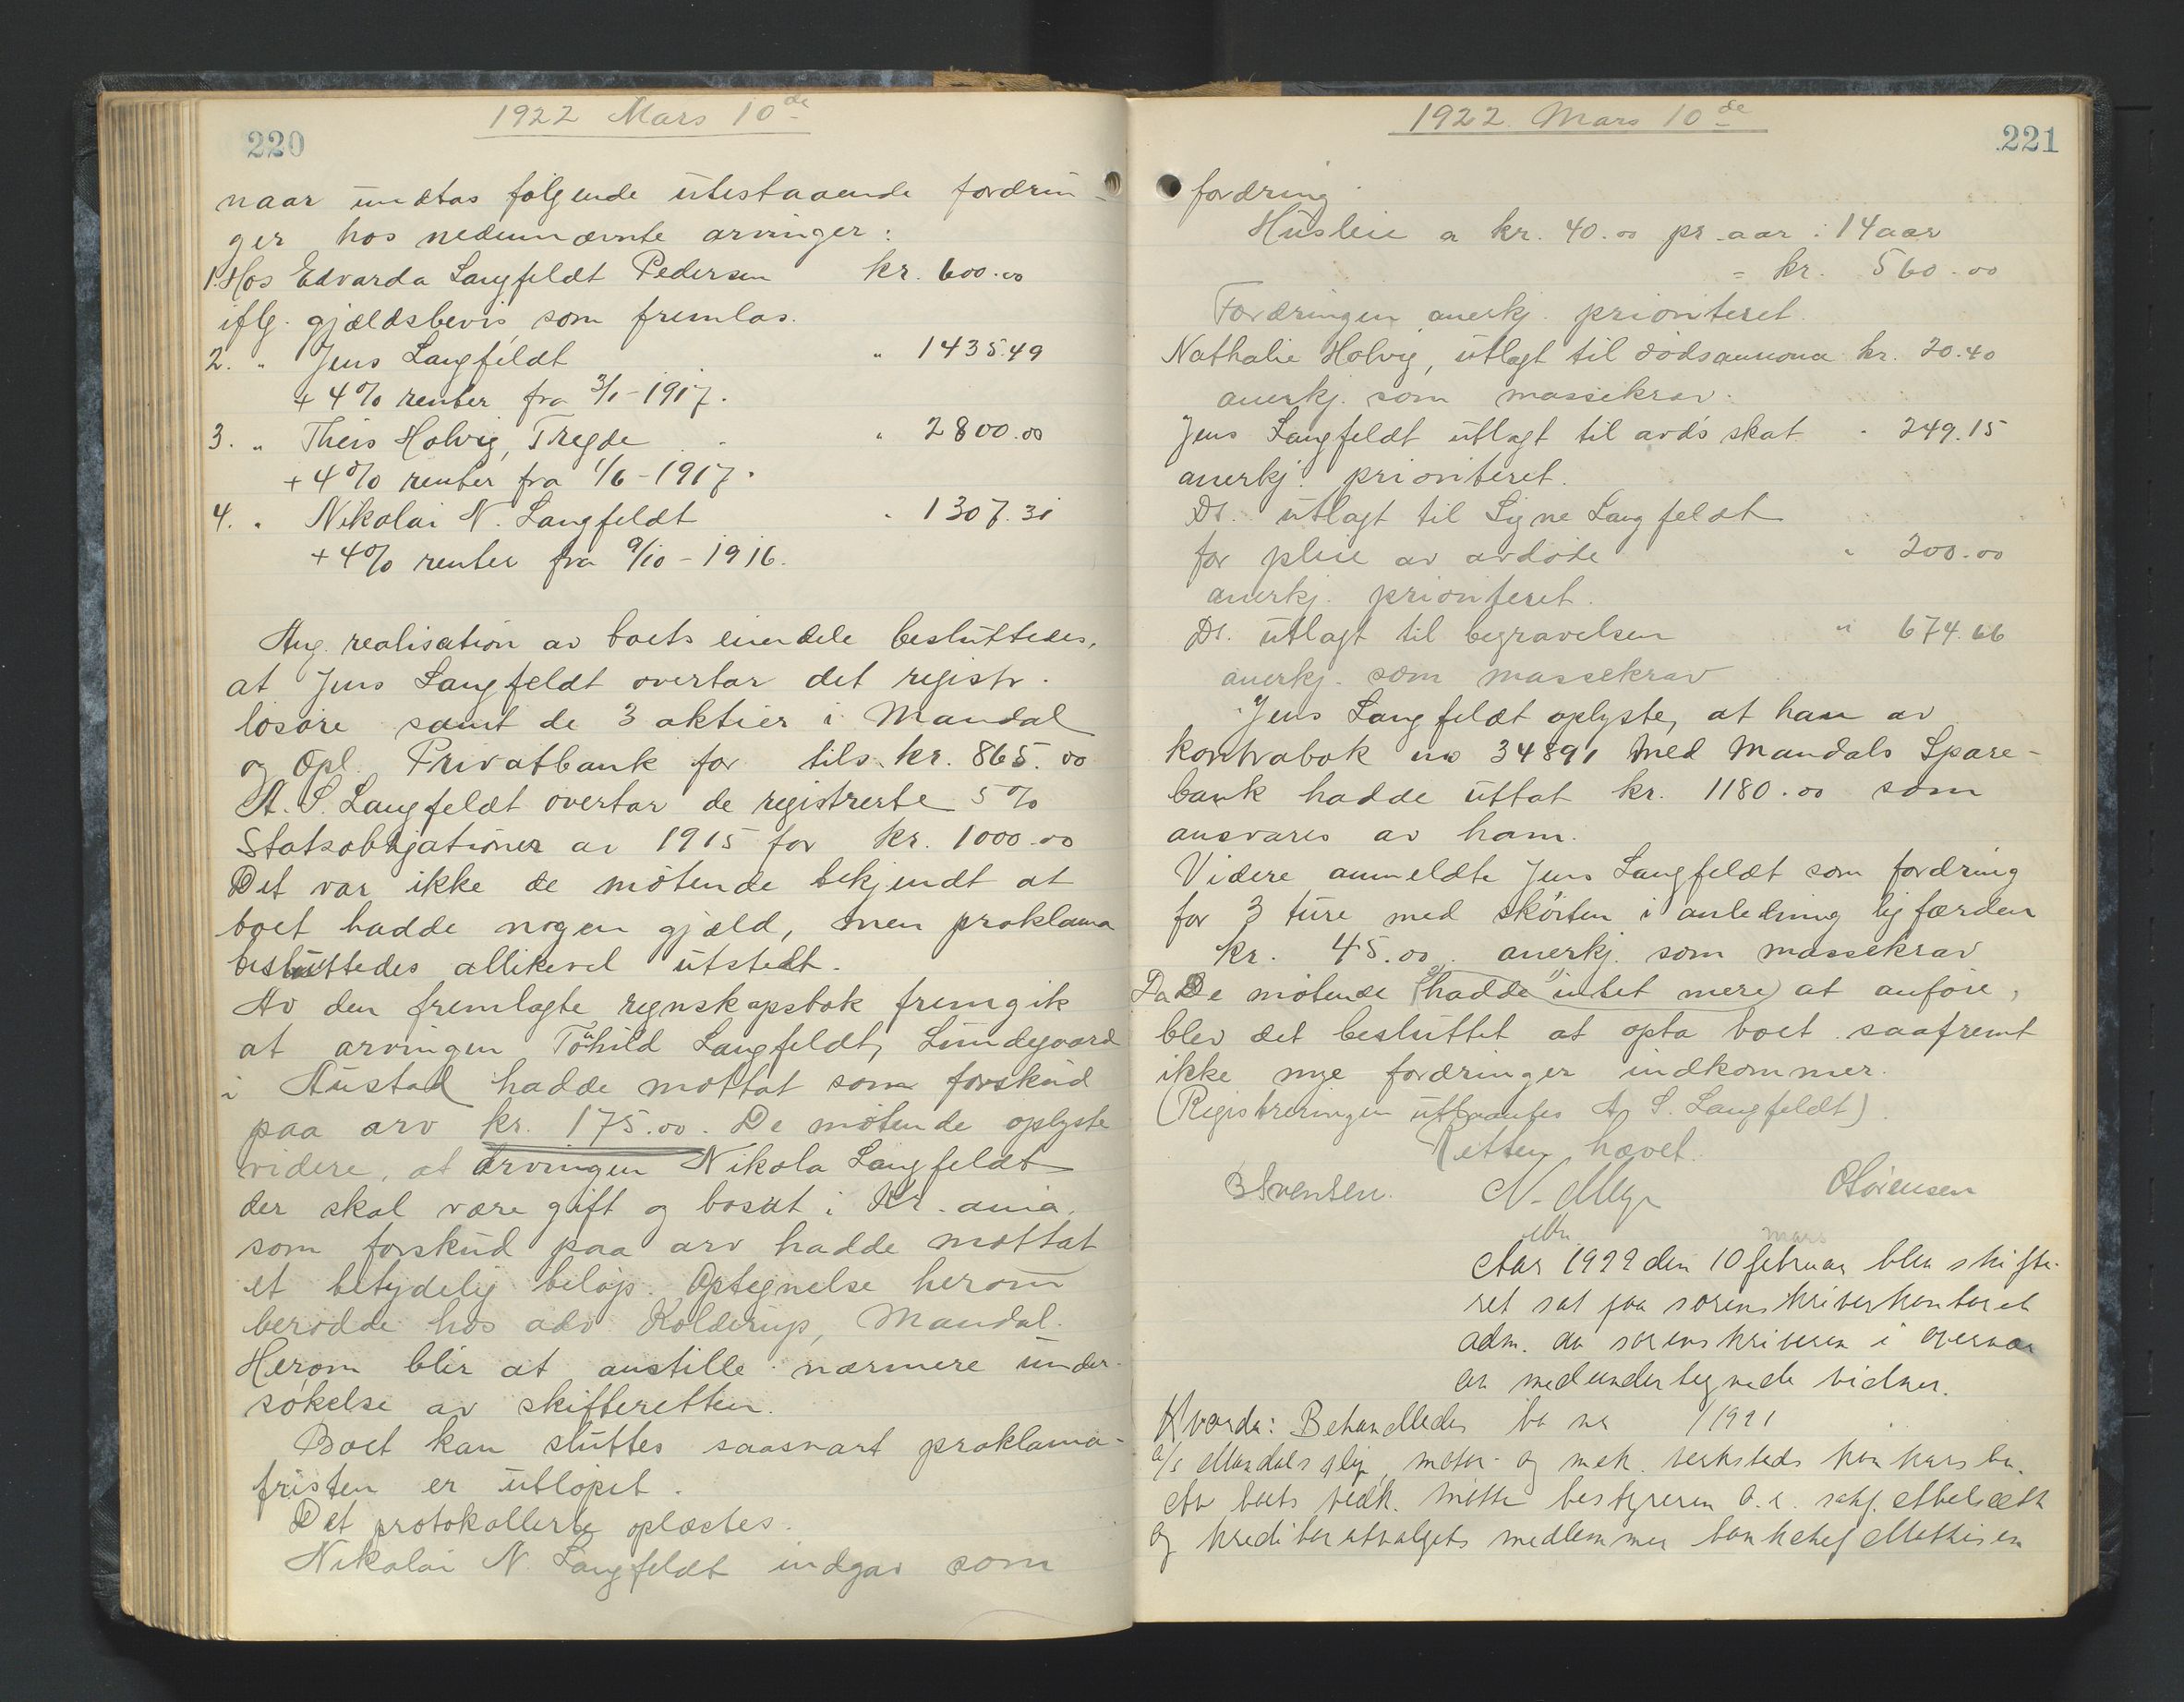 1922 Mars 10de
220
naar undtas følgende utestaaende fordrin-
ger hos nedennævnte arvinger:
1. Hos Edvarda Langfeldt Pedersen kr. 600.00
iflg. gjældsbevis som fremlas.
2. " Jens Langfeldt " 1435.49
+ 4% renter fra 3/1-1917.
3. " Theis Holvig, Tregde " 2800.00
+ 4% renter fra 1/6-1917.
4. " Nikolai N. Langfeldt " 1307.31
+ 4% renter fra 9/10-1916.
Ang. realisation av boets eiendele besluttedes,
at Jens Langfeldt overtar det registr.
løsøre samt de 3 aktier i Mandal
og Opl. Privatbank for tils. kr. 865.00
A. S. Langfeldt overtar de registrerte 5%
Statsobligationer av 1915 for kr. 1000.00
Det var ikke de møtende bekjendt at
boet hadde nogen gjæld, men proklama
besluttedes allikevel utstedt.
Av den fremlagte regnskapsbok fremgik
at arvingen Langfeldt, Lundegaard
i Austad hadde mottat som forskud
paa arv kr. 175.00. De møtende oplyste
videre, at arvingen Nikola Langfeldt
der skal være gift og bosat i Kr.ania.
som forskud paa arv hadde mottat
et betydelig beløp. Optegnelse herom
berodde hos adv. Kolderup, Mandal.
Herom blir at anstille nærmere under-
søkelse av skifteretten.
Boet kan sluttes saasnart proklama-
fristen er utløpet.
Det protokollerte oplæstes.
Nikolai N. Langfeldt indgav som
1922 Mars 10de
221
fordring
Husleie a kr. 40.00 pr aar i 14 aar
= kr. 560.00
Fordringen anerkj. prioriteret.
Nathalie Holvig, utlagt til dødsannonce kr. 20.40
anerkj. som massekrav.
Jens Langfeldt utlagt til avd's skat " 249.15
anerkj. prioriteret.
Ds. utlagt til Signe Langfeldt
for pleie av avdøde " 200.00
anerkj. prioriteret.
Ds. utlagt til begravelsen " 674.66
anerkj. som massekrav
Jens Langfeldt oplyste, at han av
kontrabok no 34891 med Mandals Spare-
bank hadde uttat kr. 1180.00 som
ansvares av ham.
Videre anmeldte Jens Langfeldt som fordring
for 3 ture med skøiten i anledning ligfærden
kr. 45.00. anerkj. som massekrav
Da De møtende hadde intet mere at anføre,
blev det besluttet at opta boet saafremt
ikke nye fordringer indkommer.
(Registreringen av A. S. Langfeldt)
Retten hævet.
B Svensen. N. Meyer O Sørensen
mars
Aar 1922 den 10 februar blev skifte-
ret sat paa sorenskriverkontoret
adm. av sorenskriveren i overvær
av medundertegnede vidner.
Hvorda: Behandledes bo no /1921
a/s Mandals slip, motor- og mek. verksteds konkursbo.
Av boets vedk. møtte bestyreren o.r. sakf. Abelseth
og kreditorutvalgets medlemmer bankchef Mathisen